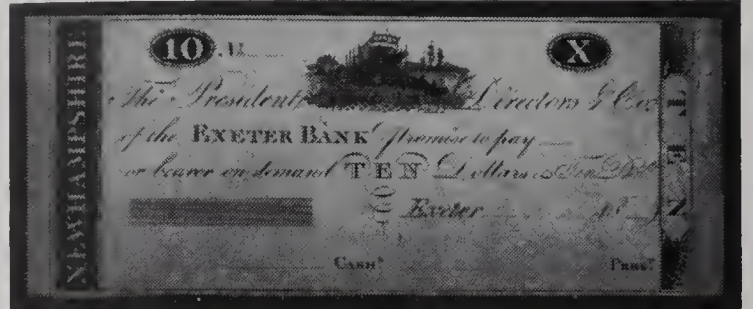 NEWHAMPSHIRE
10 X
The President Directors & Co.
of the EXETER BANK promise to pay
or bearer on demand TEN Dollars
Exeter
CASHR PREST